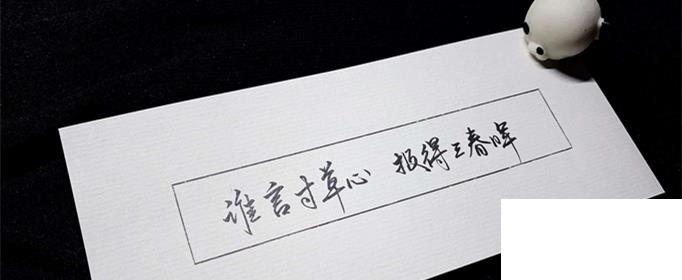 谁言寸草心 报得三春晖